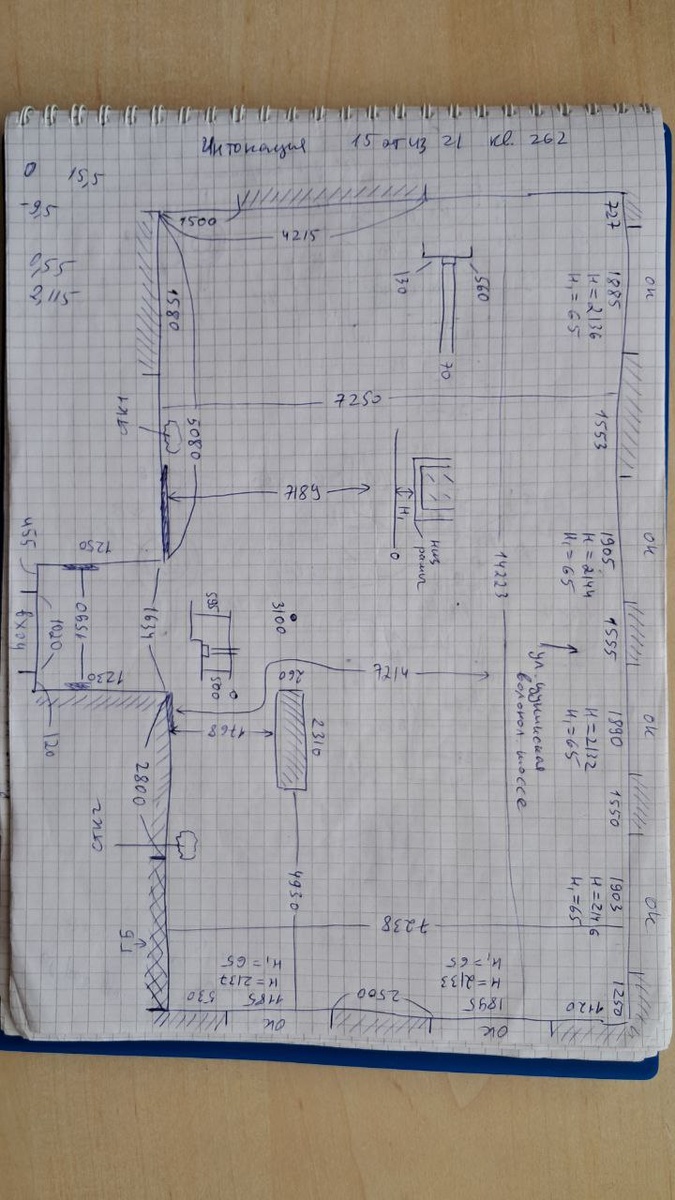 15 эт из 21 кв. 262
0 15,5
-9,5
2,115
1500
4215
727
ок
1885
H=2136
H₁=65
1580
130
560
70
7250
СТК1
5080
1553
H₁
0
низ
рамы
ок
1905
H=2144
H₁=65
14223
455
1250
1020
вход
1650
1634
595
500
3100
1555
1230
120
260
7217
1768
2310
ул.
волокол шоссе
ок
1890
H=2132
H₁=65
1550
2800
СТК2
4930
ок
1903
H=2146
H₁=65
ГБ
7238
530
1185
H=2137
H₁=65
ок
2500
1895
H=2133
H₁=65
ок
1120
1250